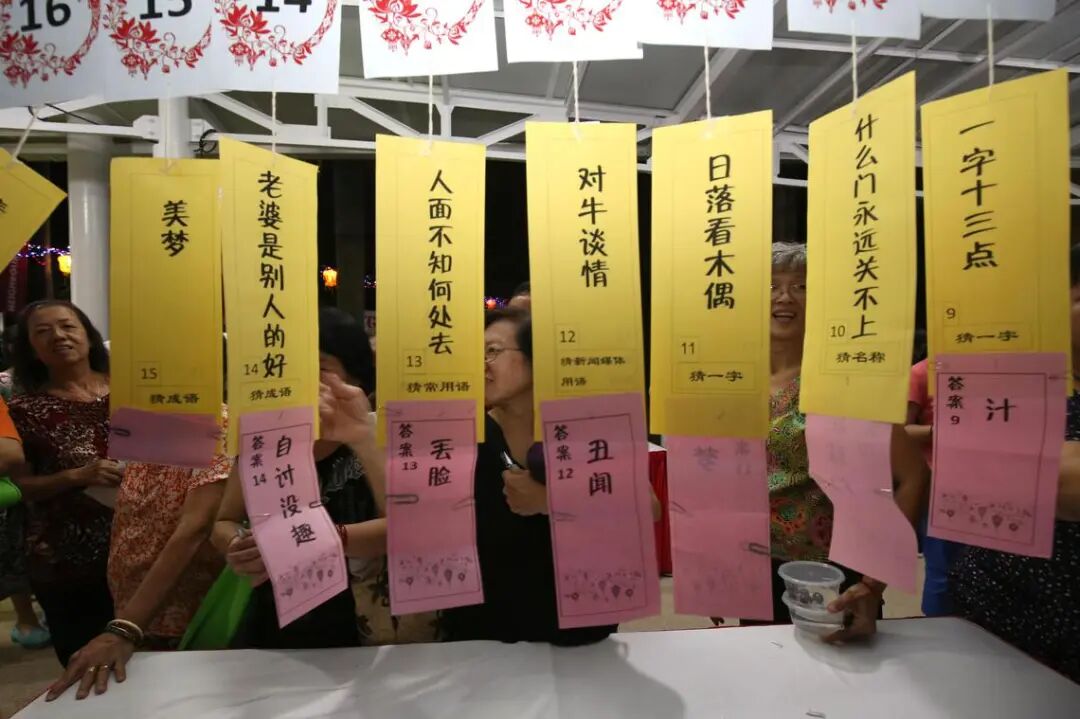 16
15
14
美梦
15
猜成语
老婆是别人的好
14
猜成语
答案
14
自讨没趣
人面不知何处去
13
猜常用语
答案
13
丢脸
对牛谈情
12
猜新闻媒体
用语
答案
12
丑闻
日落看木偶
11
猜一字
什么门永远关不上
10
猜名称
一字十三点
9
猜一字
答案
9
汁